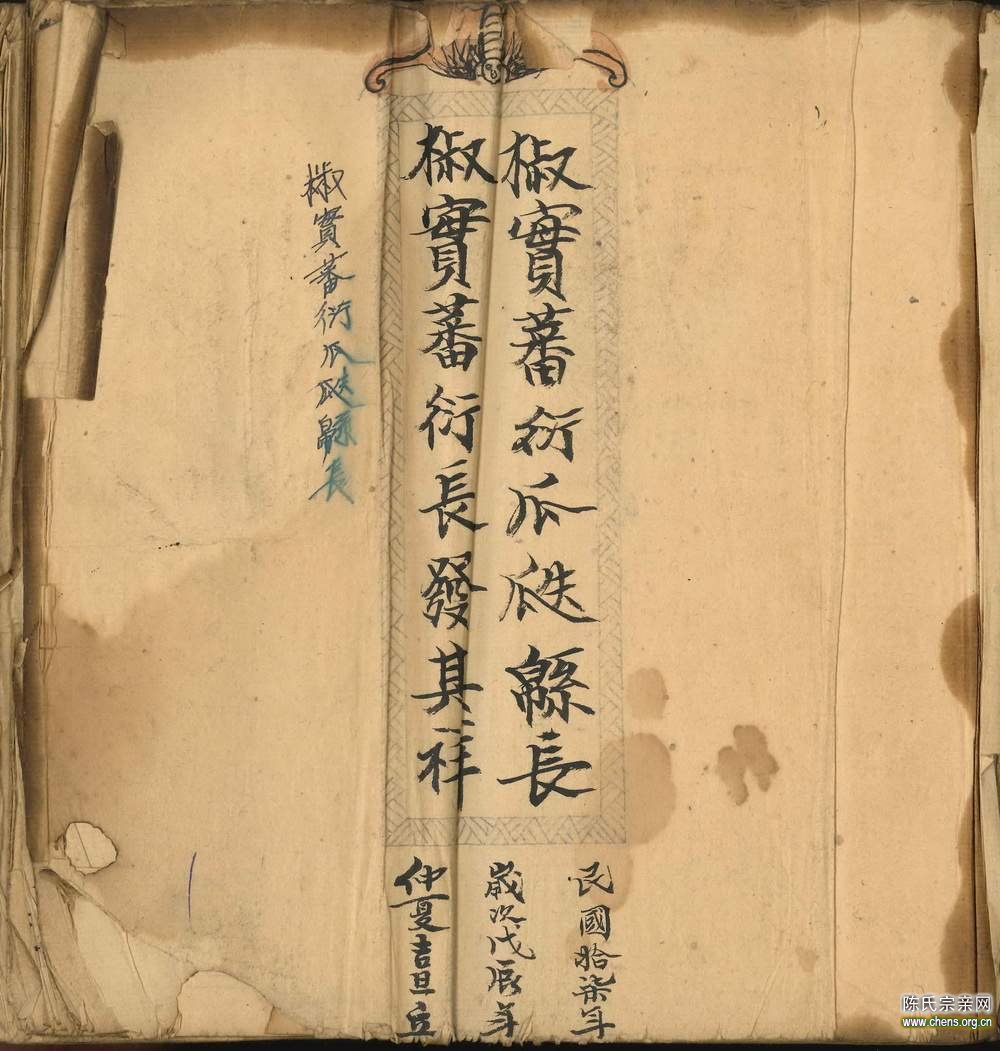 椒實蕃衍瓜瓞緜長
椒實蕃衍長發其祥
椒實蕃衍瓜瓞緜長
民國拾柒年
歲次戊辰年
仲夏吉旦立
陈氏宗亲网
www.chens.org.cn